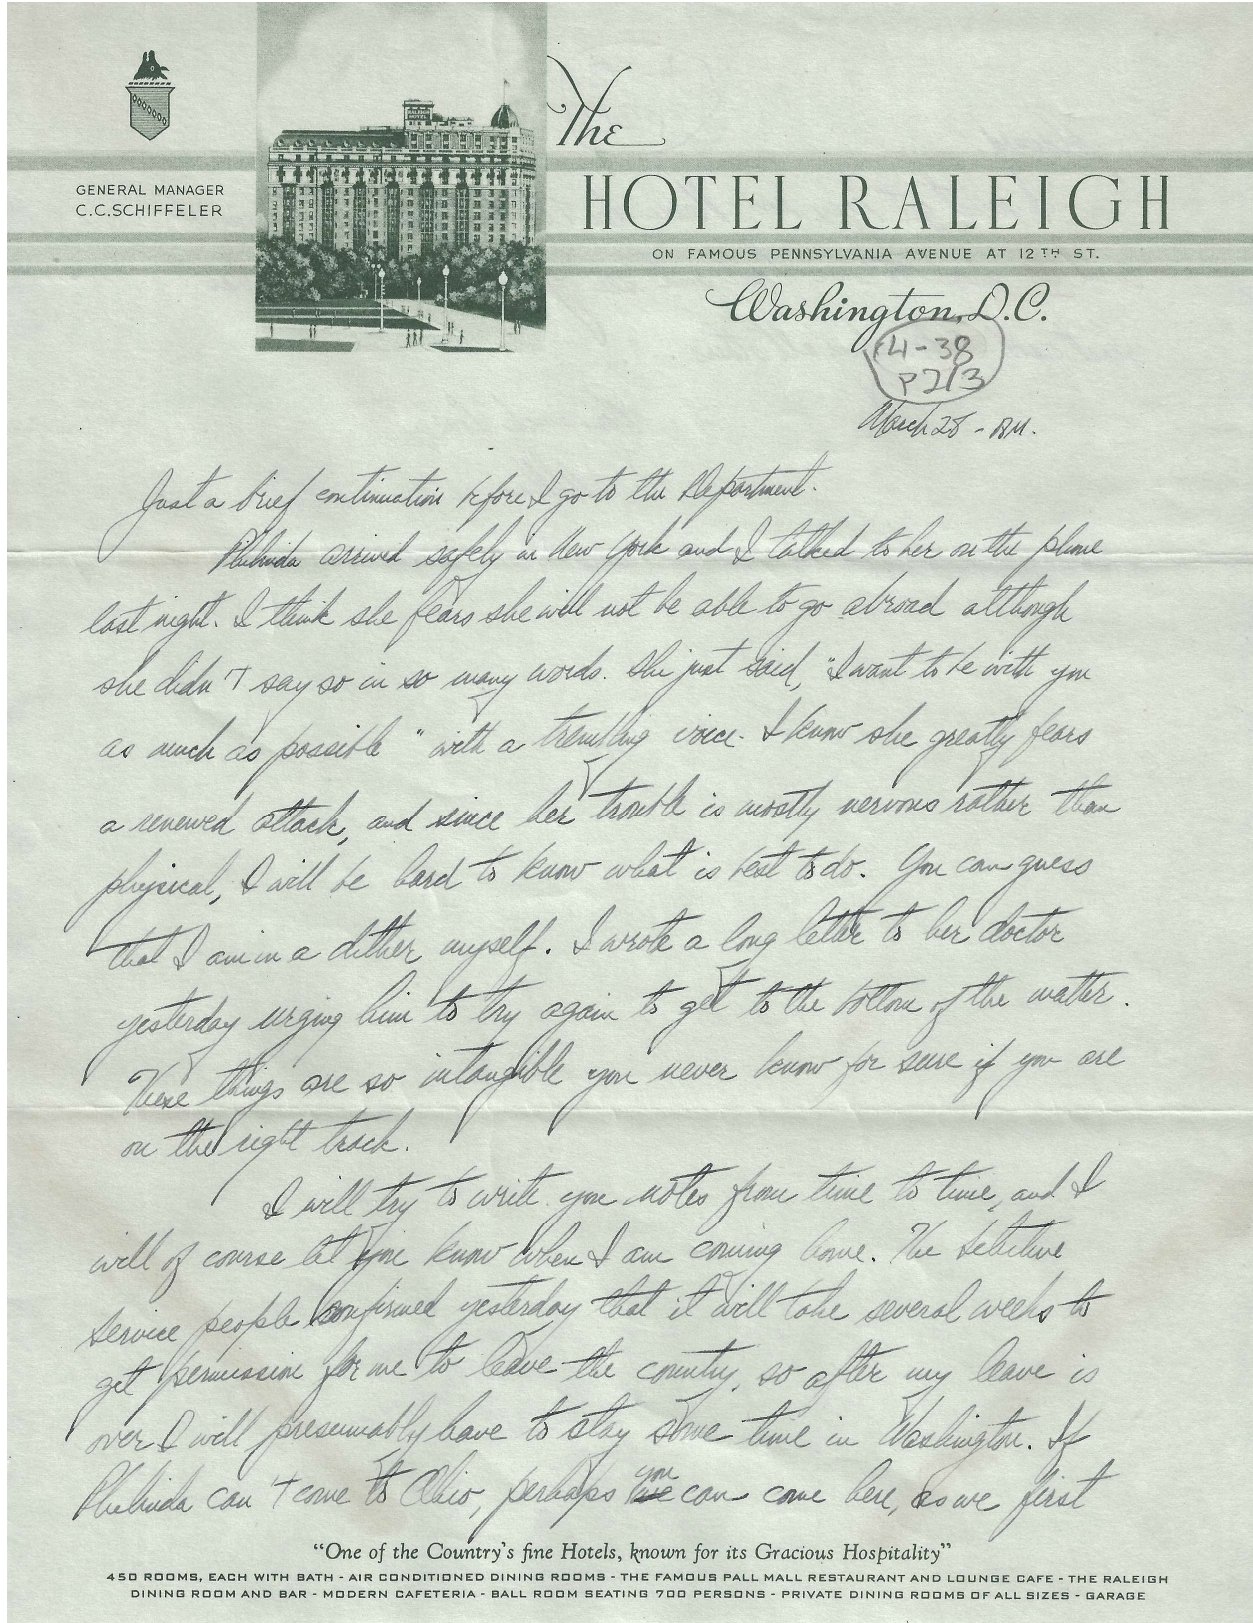 The
HOTEL RALEIGH
GENERAL MANAGER
C.C.SCHIFFELER
RALEIGH
HOTEL
ON FAMOUS PENNSYLVANIA AVENUE AT 12TH ST.
Washington, D.C.
4-38
P2/3
March 28 - AM.
Just a brief continuation before I go to the Department.
Phelinda arrived safely in New York and I talked to her on the phone
last night. I think she fears she will not be able to go abroad although
she didn't say so in so many words. She just said, "I want to be with you
as much as possible" with a trembling voice. I know she greatly fears
a renewed attack, and since her trouble is mostly nervous rather than
physical, I will be hard to know what is best to do. You can guess
that I am in a dither myself. I wrote a long letter to her doctor
yesterday urging him to try again to get to the bottom of the matter.
These things are so intangible you never know for sure if you are
on the right track.
I will try to write you notes from time to time, and I
will of course let you know when I am coming home. The Selective
Service people confirmed yesterday that it will take several weeks to
get permission for me to leave the country, so after my leave is
over I will presumably have to stay some time in Washington. If
Phelinda can't come to Ohio, perhaps you can come here, as we first
"One of the Country's fine Hotels, known for its Gracious Hospitality"
450 ROOMS, EACH WITH BATH - AIR CONDITIONED DINING ROOMS - THE FAMOUS PALL MALL RESTAURANT AND LOUNGE CAFE - THE RALEIGH
DINING ROOM AND BAR - MODERN CAFETERIA - BALL ROOM SEATING 700 PERSONS - PRIVATE DINING ROOMS OF ALL SIZES - GARAGE